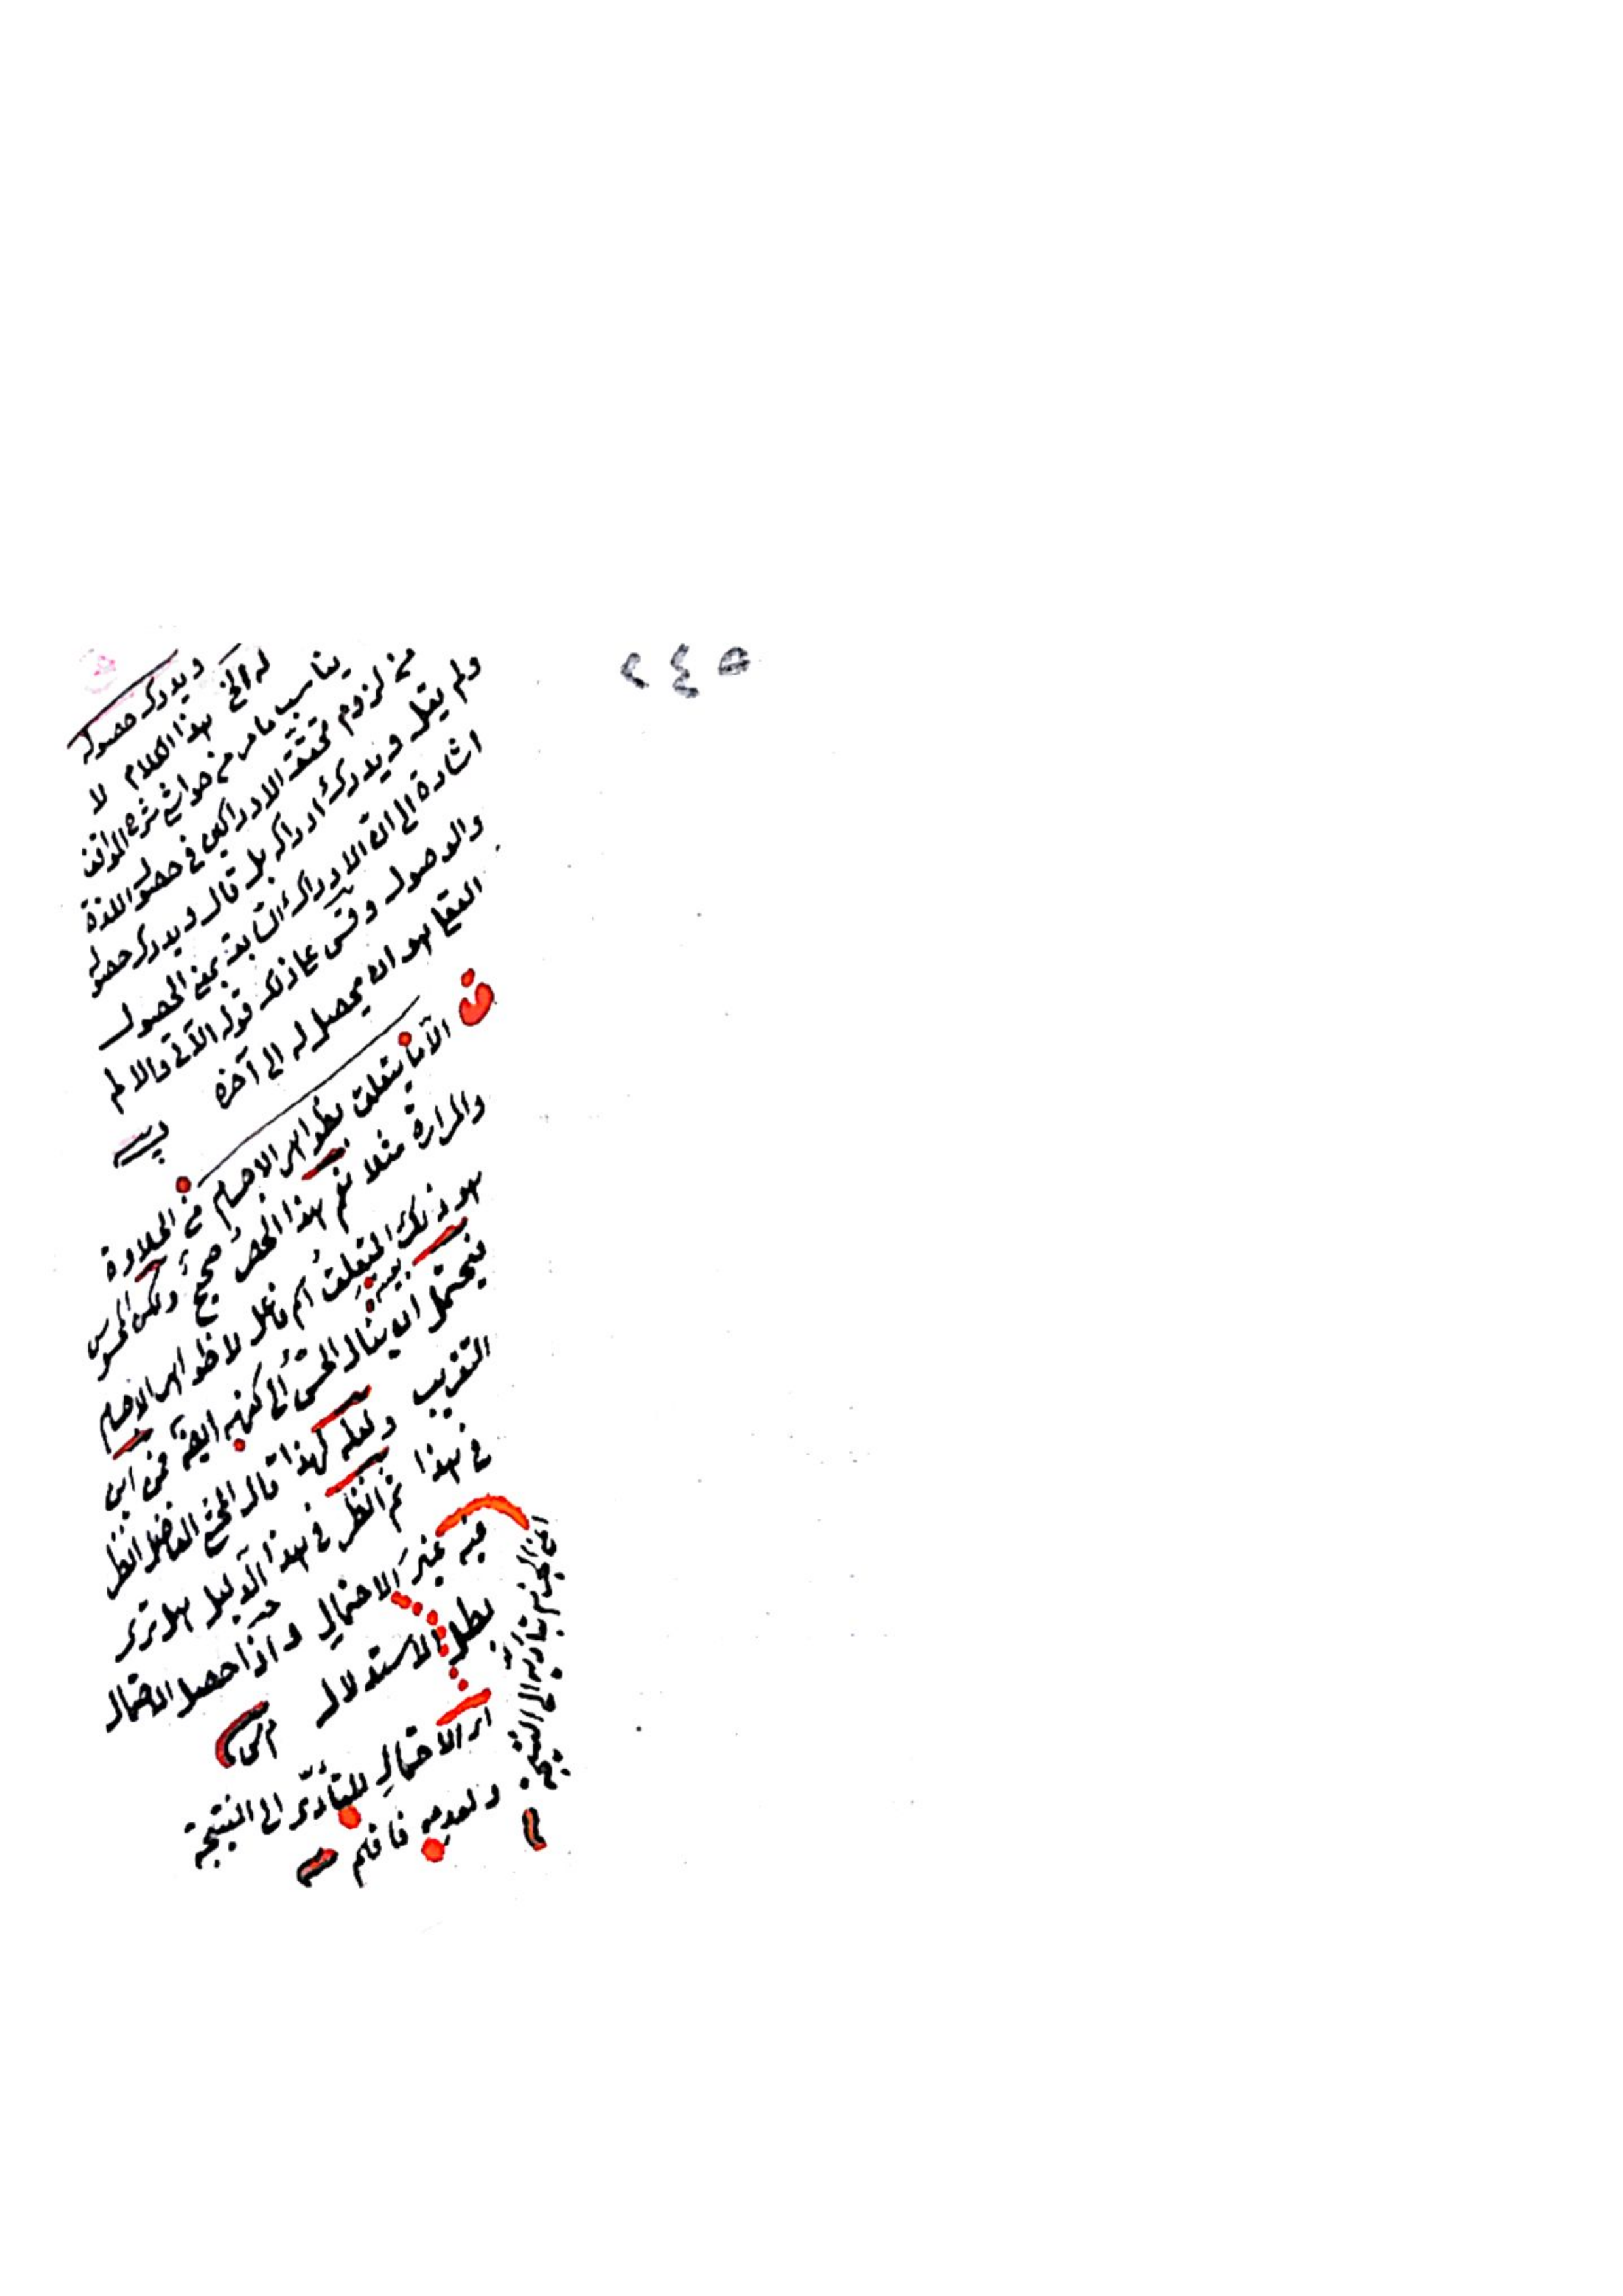 ٢٤٥
ويدرك حصوله
له الخ هذا الكلام لا
يناسب ما مر من حواشي شرح المواقف
من لزوم تحقق الادراكين في حصول اللذة
ولم يقل ويدرك ادراكه بل قال ويدرك حصوله
اشارة الى ان الادراك بمعنى الحصول
والوصول وقس على ذلك قوله الآتي والالم
العقلي هو ان يحصل له الى آخره
الا بما يتعلق بظواهر الاجسام من الحلاوة
والمرارة مثلا نعم هذا الحصر صحيح ولكن المحسوس
هو ذلك المتعلق اسم فاعل لا ظواهر الاجسام
فيحتمل ان ينال الحس الى كنهه ايضا فمن اين
التقريب ولعله لهذا قال المحشي الفاضل انظر
في هذا ثم انظر في هذا الدليل هل ترى
فيه غير الاحتمال واذا حصل الاحتمال
بطل الاستدلال
اي الاحتمال للتأدي الى النتيجة
ولعدمه فافهم
اي الجزم بتأديته الى النتيجة